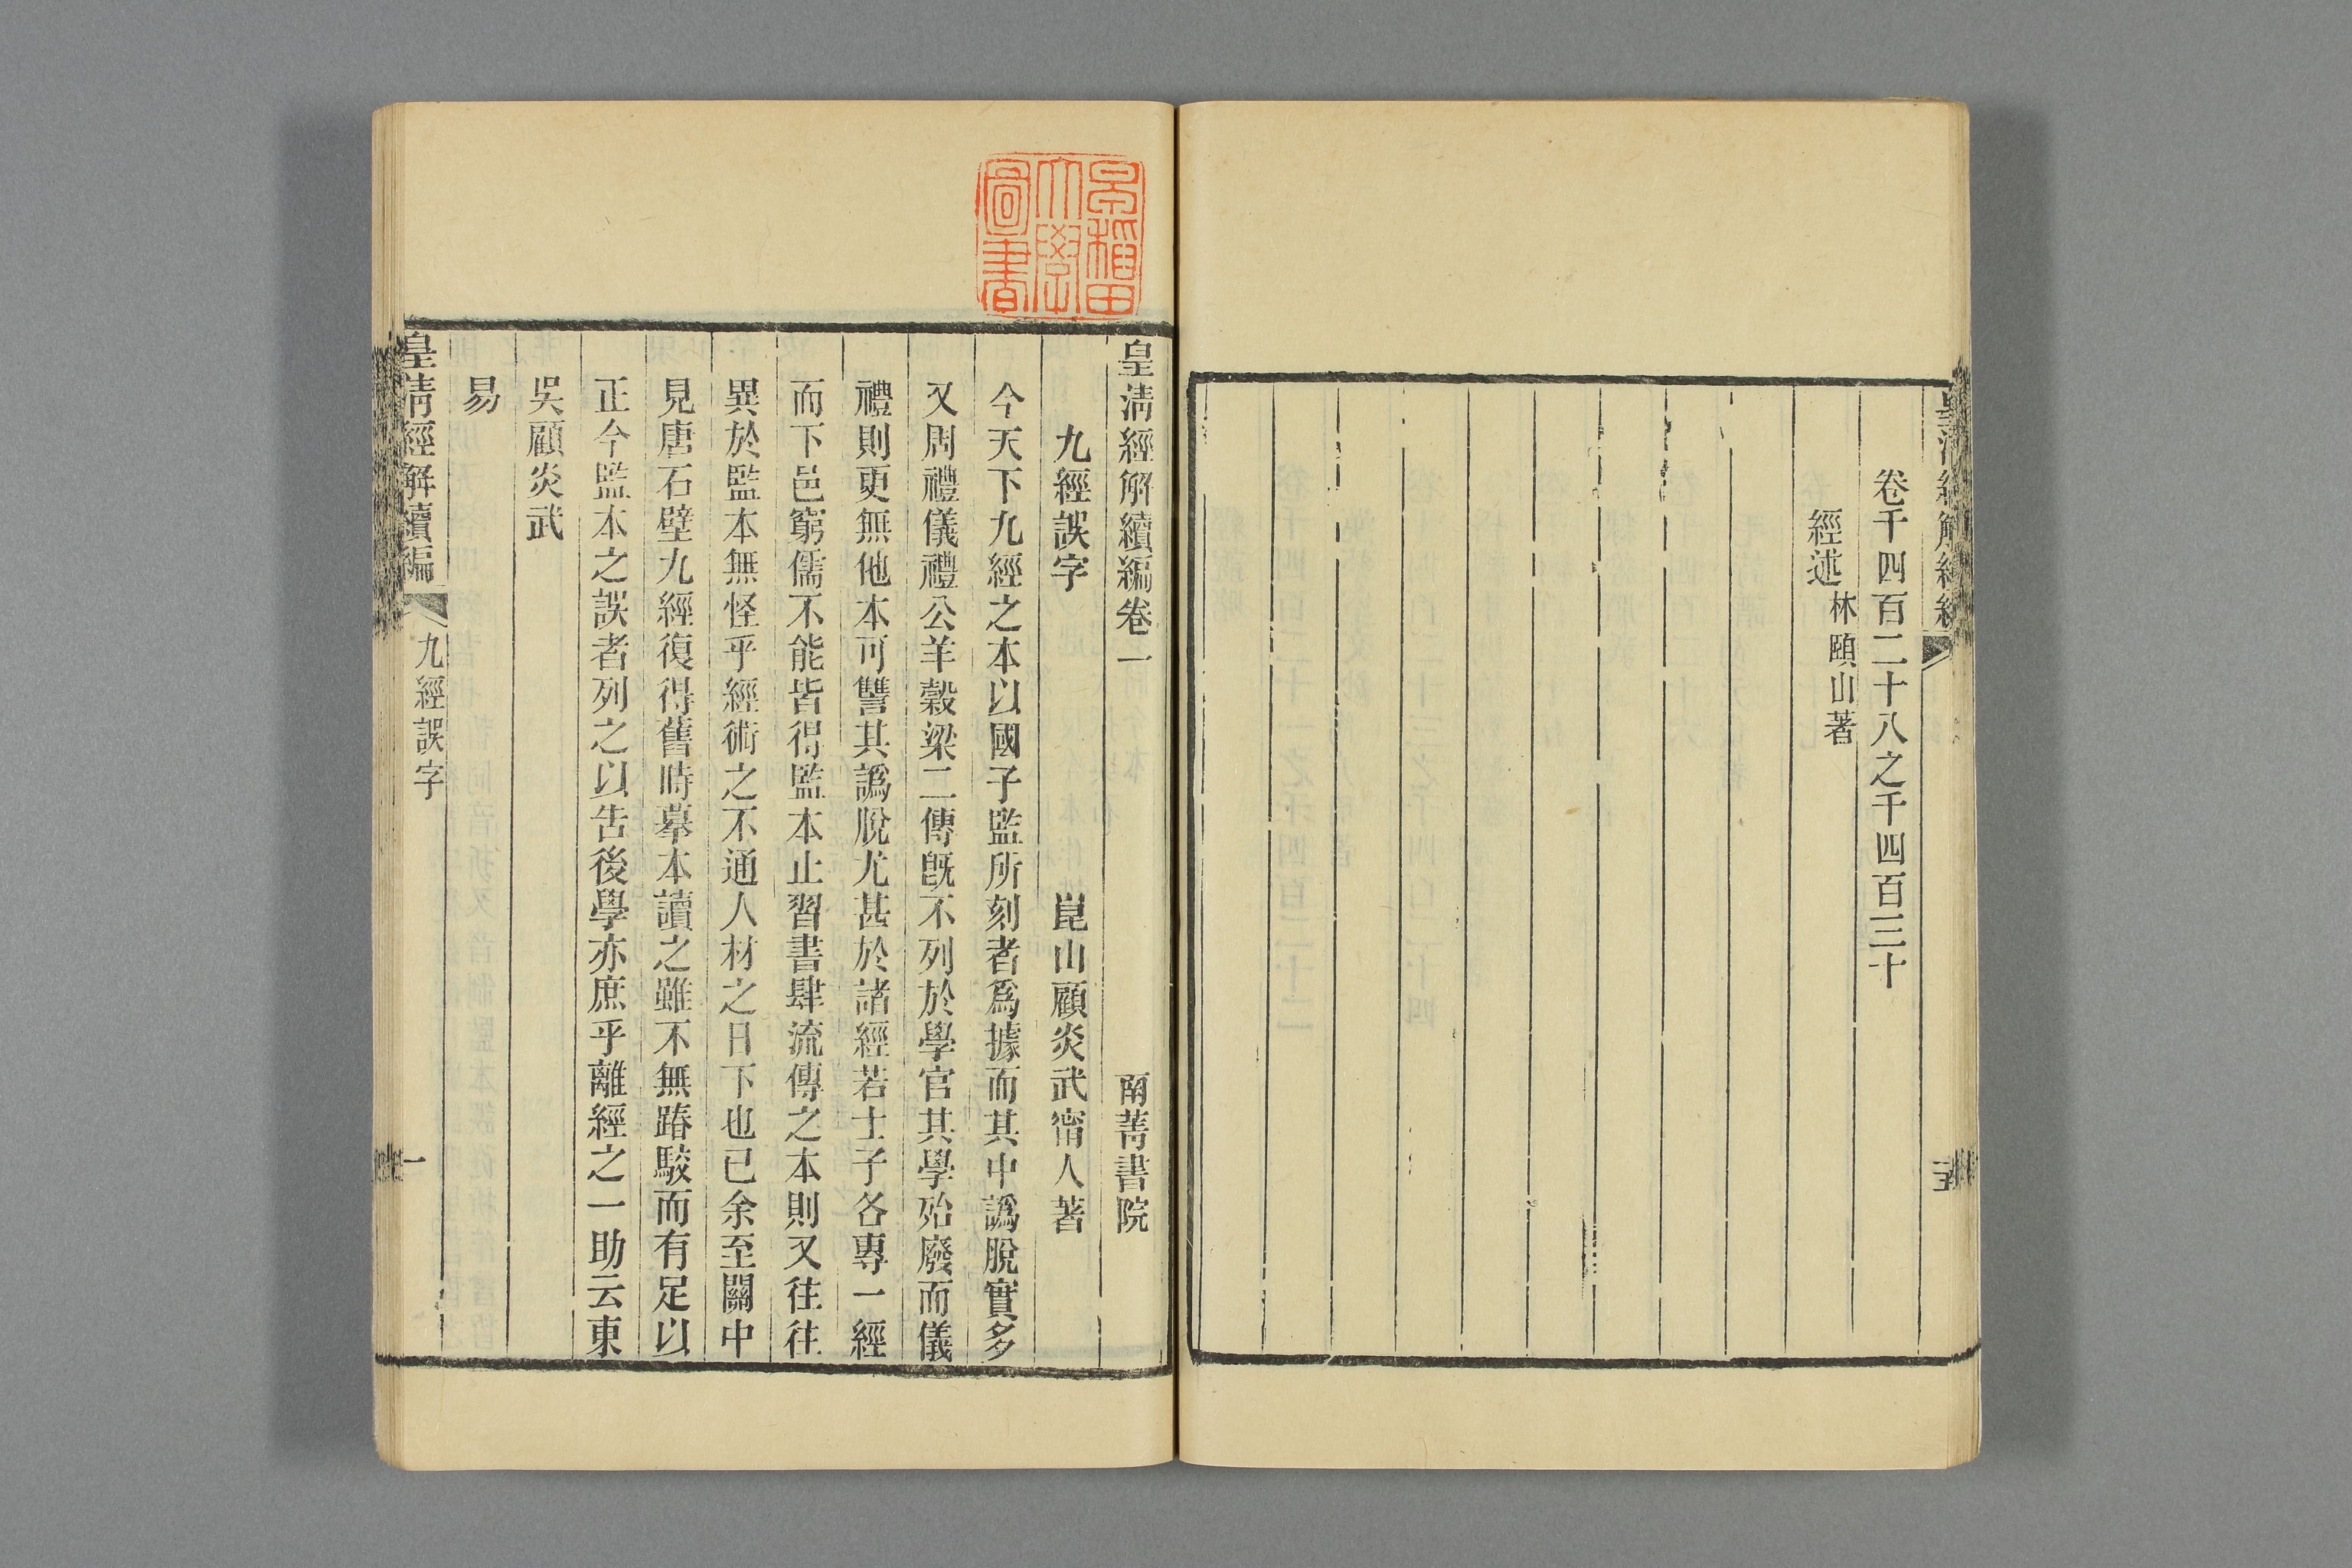 卷千四百二十八之千四百三十
經述林頤山著
早稲田
大學
圖書
皇淸經解續編卷一
南菁書院
九經誤字
崑山顧炎武甯人著
今天下九經之本以國子監所刻者爲據而其中譌脫實多
又周禮儀禮公羊穀梁二傳旣不列於學官其學殆廢而儀
禮則更無他本可讐其譌脫尤甚於諸經若士子各專一經
而下邑窮儒不能皆得監本止習書肆流傳之本則又往往
異於監本無怪乎經術之不通人材之日下也已余至關中
見唐石壁九經復得舊時摹本讀之雖不無踳駮而有足以
正今監本之誤者列之以告後學亦庶乎離經之一助云東
吳顧炎武
易
皇淸經解續編
九經誤字
一